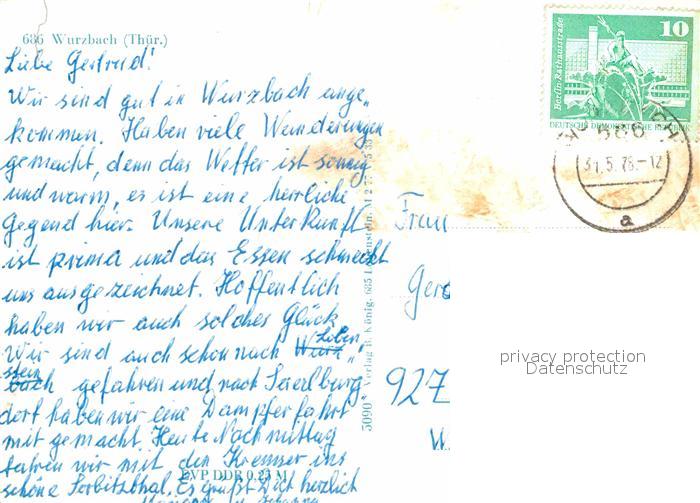 686 Wurzbach (Thür.)
Liebe Gertrud!
Wir sind gut in Wurzbach ange„
kommen. Haben viele Wanderungen
gemacht, denn das Wetter ist sonnig
und warm, es ist eine herrliche
Gegend hier. Unsere Unterkunft
ist prima und das Essen schmeckt
uns ausgezeichnet. Hoffentlich
haben wir auch solches Glück
Wir sind auch schon nach Loben„
stein gefahren und nach Saalburg
dort haben wir eine Dampferfahrt
mit gemacht Heute Nachmittag
fahren wir mit den Kremser ins
schöne Sorbitzthal. Es grüßt Dich herzlich
EVP DDR 0.25 M
5090 Verlag B. König, 685 Lobenstein
Berlin-Rathausstraße
10
DEUTSCHE DEMOKRATISCHE REPUBLIK
31.5.78.-12
a
Frau
Ger
927
W
privacy protection
Datenschutz